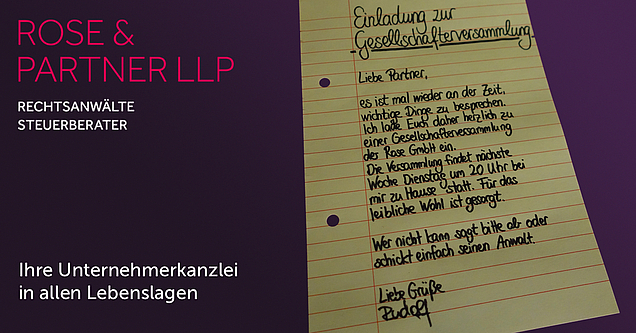 ROSE &
PARTNER LLP
RECHTSANWÄLTE
STEUERBERATER
Ihre Unternehmerkanzlei
in allen Lebenslagen
Einladung zur
Gesellschafterversammlung
Liebe Partner,
es ist mal wieder an der Zeit,
wichtige Dinge zu besprechen.
Ich lade Euch daher herzlich zu
einer Gesellschafterversammlung
der Rose GmbH ein.
Die Versammlung findet nächste
Woche Dienstag um 20 Uhr bei
mir zu Hause statt. Für das
leibliche Wohl ist gesorgt.
Wer nicht kann sagt bitte ab oder
schickt einfach seinen Anwalt.
Liebe Grüße
Rudolf